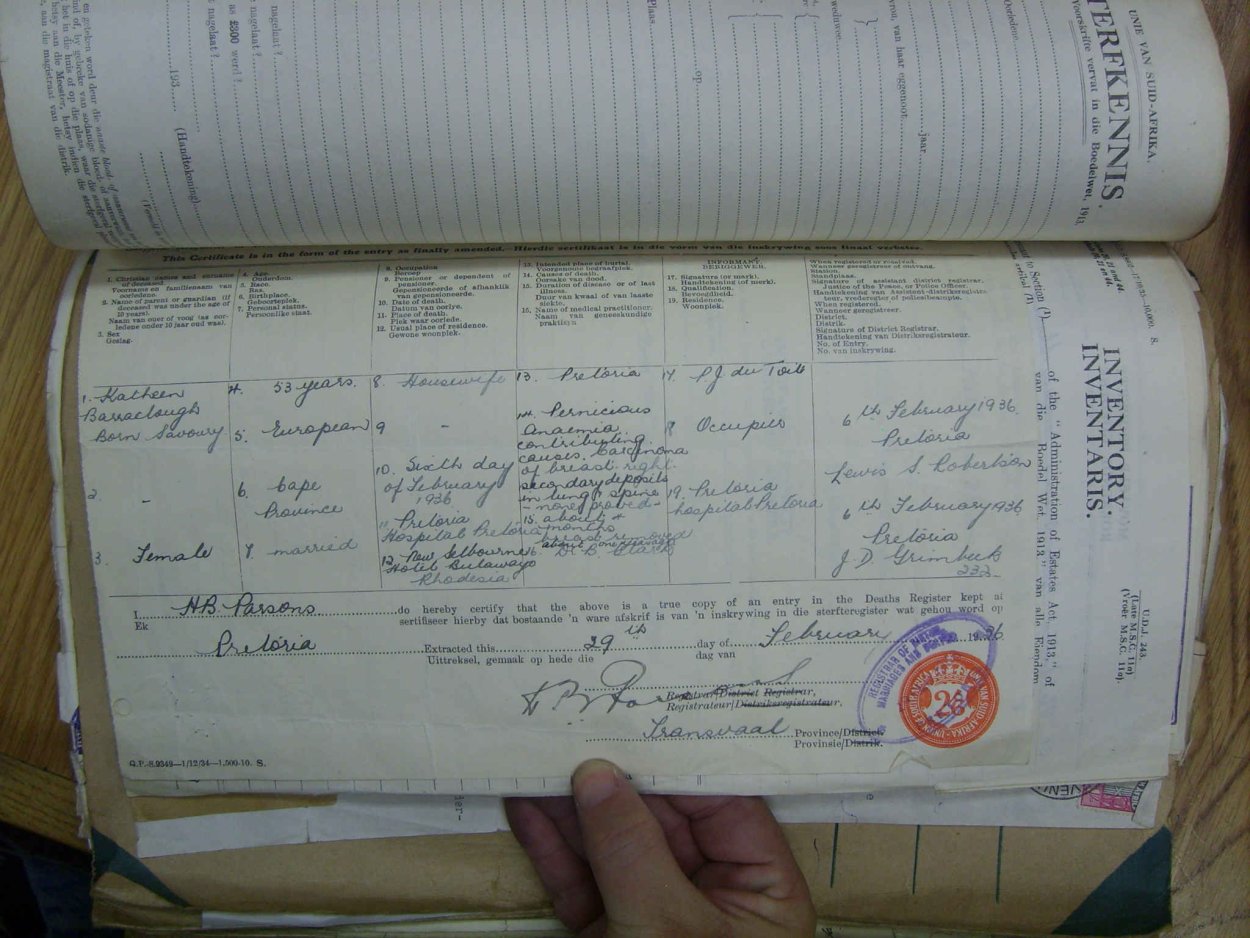 UNIE VAN SUID-AFRIKA.
TERFKENNIS
Voorskrifte vervat in die Boedelwet, 1913
Oorledene
jaar
vrou, van haar eggenoot,
weduwee
Plaas
op
nagelaat?
nagelaat?
as £300 werd?
nagelaat?
193
(Handtekening)
This Certificate is in the form of the entry as finally amended.—Hierdie sertifikaat is in die vorm van die inskrywing soos finaal verbeter.
1. Christian names and surname
of deceased.
Voorname en familienaam van
oorledene.
2. Name of parent or guardian (if
deceased was under the age of
10 years).
Naam van ouer of voog (as oor-
ledene onder 10 jaar oud was).
3. Sex
Geslag.
4. Age.
Ouderdom.
5. Race.
Ras.
6. Birthplace.
Geboorteplek.
7. Personal status.
Persoonlike staat.
8. Occupation
Beroep
9. Pensioner or dependent of
pensioner.
Gepensioneerde of afhanklik
van gepensioneerde.
10. Date of death.
Datum van oorlye.
11. Place of death.
Plek waar oorlede.
12. Usual place of residence.
Gewone woonplek.
13. Intended place of burial.
Voorgenome begraafplek.
14. Causes of death.
Oorsake van dood.
15. Duration of disease or of last
illness.
Duur van kwaal of van laaste
siekte.
16. Name of medical practitioner.
Naam van geneeskundige
praktisyn
INFORMANT.
BERIGGEWER.
17. Signature (or mark).
Handtekening (of merk).
18. Qualification.
Bevoegdheid.
19. Residence.
Woonplek.
When registered or received.
Wanneer geregistreer of ontvang.
Station.
Standplaas.
Signature of assistant district registrar,
Justice of the Peace, or Police Officer.
Handtekening van Assistent-distriksregistra-
teur, vrederegter of polisiebeampte.
When registered.
Wanneer geregistreer.
District.
Distrik.
Signature of District Registrar.
Handtekening van Distriksregistrateur.
No. of Entry.
No. van inskrywing.
1. Katheen
Barraclough
Born Savoury
2. -
3. Female
4. 53 years.
5. European
6. Cape
Province
7. married
8. Housewife
9 -
10. Sixth day
of February
1936
11 Pretoria
Hospital Pretoria
12 New Selbourne
Hotel Bulawayo
Rhodesia
13. Pretoria
14. Pernicious
Anaemia.
contributing
causes. Carcinoma
of breast-right
secondary deposits
in lung & spine
- none proved -
15. about 4
months
breast removed
16 Dr B. Clark
17. P.J du Toit
8 Occupier
19. Pretoria
hospital Pretoria
6th February 1936
Pretoria
Lewis S. Robertson
6th February 1936
Pretoria
J. D. Grimbeek
232
I, H.B. Parsons do hereby certify that the above is a true copy of an entry in the Deaths Register kept at
Ek sertifiseer hierby dat bostaande 'n ware afskrif is van 'n inskrywing in die sterfteregister wat gehou word op
Pretoria Extracted this 29th day of Februari 1936.
Uittreksel, gemaak op hede die dag van
Registrar/District Registrar,
Registrateur/Distriksregistrateur.
Transvaal Province/District.
Provinsie/Distrik.
REGISTRAR OF BIRTHS
MARRIAGES AND DEATHS
UNIE VAN SUID AFRIKA · UNION OF SOUTH AFRICA
2/6
G.P.-S.9349—1/12/34—1,500-10. S.
INVENTORY.
INVENTARIS.
of the "Administration of Estates Act, 1913," of
van die "Boedel Wet, 1913" van alle Eiendom
U.D.J. 243.
(Late M.S.C. 11o)
(Vroër M.S.C. 11o).